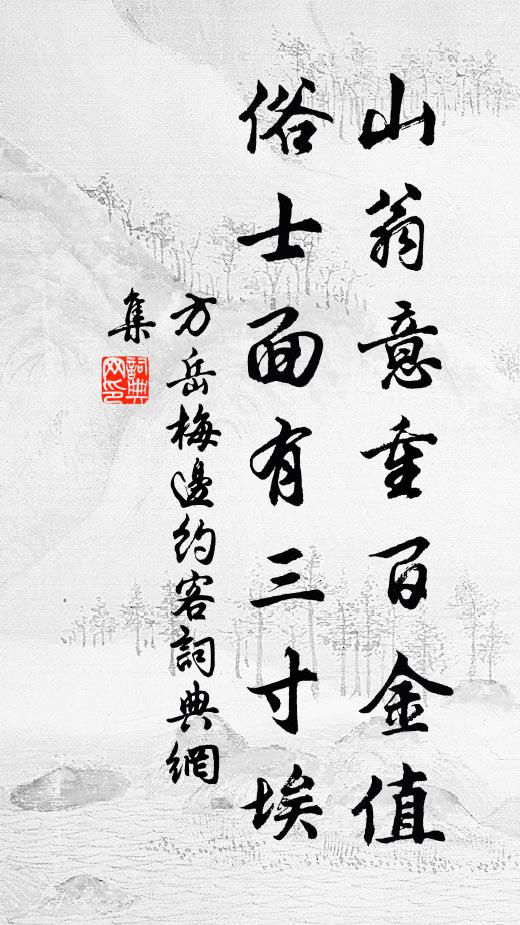 山翁意重百金值
俗士面有三寸埃
方岳梅邊約客詞典網
集
詞典
网印